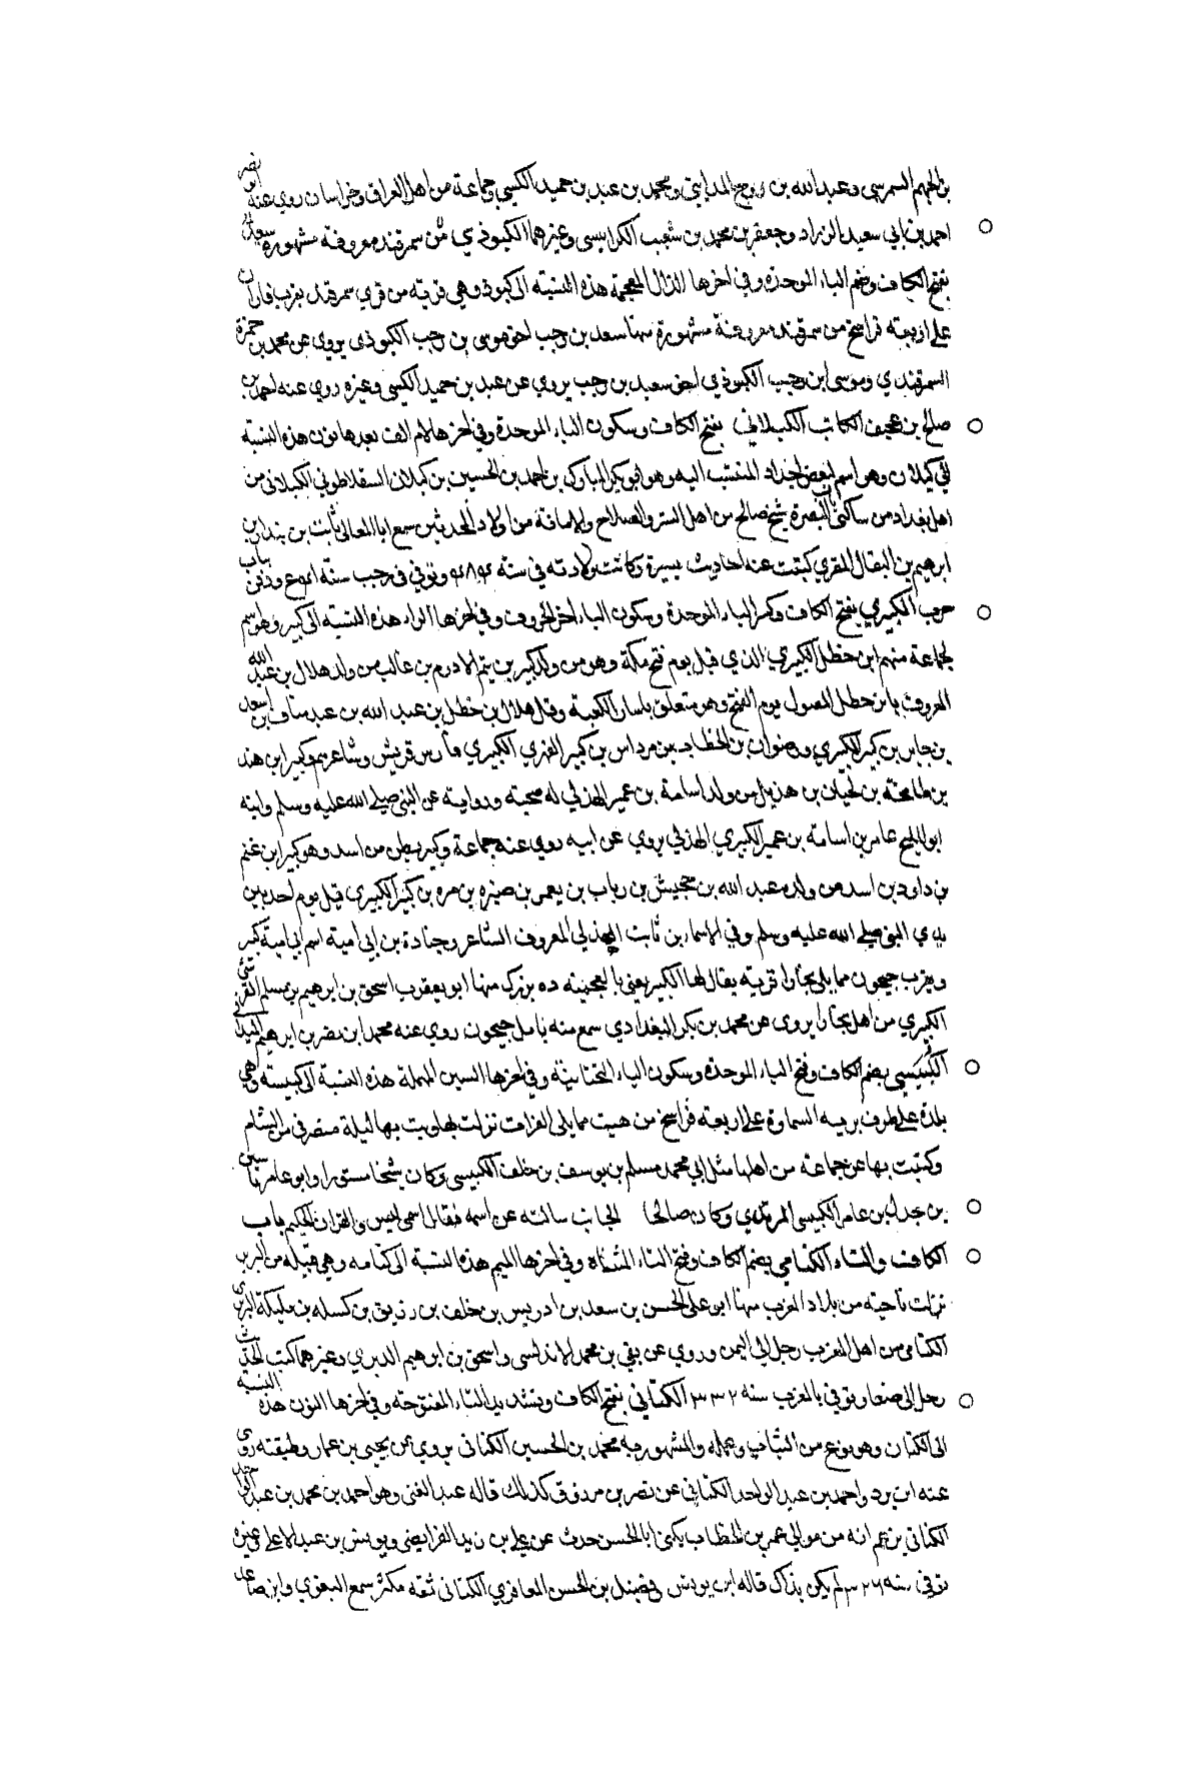 بن الجهم السمري وعبد الله بن روح المدايني ومحمد بن عبد بن حميد الكسي وجماعة من اهل العراق وخراسان روي عنه ابو نصر
احمد بن ابي سعيد الزراد وجعفر بن محمد بن شعيب الكرابيسي وغيرهما الكبوذي من سمرقند معروفة مشهورة
بفتح الكاف وضم الباء الموحدة وفي اخرها الذال المعجمة هذه النسبة الى كبوذ وهي قرية من قري سمرقند بقرب فاران
على اربعة فراسخ من سمرقند معروفة مشهورة منها سعد بن رجب اخو موسى بن رجب الكبوذي يروي عن محمد بن حمزة
السمرقندي وموسى ابن رجب الكبوذي اخو سعيد بن رجب يروي عن عبد بن حميد الكسي وغيره روي عنه احمد بن
صالح بن عجيف الكاتب الكبلاني بفتح الكاف وسكون الباء الموحدة وفي اخرها لام الف بعدها نون هذه النسبة
الي كبلان وهو اسم لبعض اجداد المنتسب اليه وهو ابو بكر المبارك بن احمد بن الحسين بن كبلان السقلاطوني الكبلاني من
اهل بغداد من ساكني البصرة شيخ صالح من اهل الستر والصلاح والامانة من اولاد المحدثين سمع ابا المعالي ثابت بن بندار بن
ابرهيم بن البقال المقري كتبت عنه احاديث يسيرة وكانت ولادته في سنة وتوفي في رجب سنة ودفن بباب
حرب الكبيري بفتح الكاف وكسر الباء الموحدة وسكون الياء اخر الحروف وفي اخرها الراء هذه النسبة الى كبير وهو اسم
لجماعة منهم ابن خطل الكبيري الذي قتل يوم فتح مكة وهو من ولد كبير بن تيم الادرم بن غالب من ولد هلال بن عبد الله
المعروف بابن خطل المقتول يوم الفتح وهو متعلق باستار الكعبة وقتل هلال بن خطل بن عبد الله بن عبد مناف بن اسعد
بن جابر بن كبير الكبيري وضوان بن الخطاب بن مرداس بن كبير الفهري الكبيري فارس قريش وشاعرهم وكبير ابن هند
بن طابخة بن لحيان بن هذيل من ولد اسامة بن عمير الهذلي له صحبة ورواية عن النبي صلى الله عليه وسلم وابنه
ابو المليح عامر بن اسامة بن عمير الكبيري الهذلي يروي عن ابيه روي عنه جماعة وكبير بطن من اسد وهو كبير ابن غنم
بن داود بن اسد من ولده عبد الله بن جحيش بن رباب بن يعمر بن صبره بن مره بن كبير الكبيري قتل يوم احد بين
يدي النبي صلى الله عليه وسلم وفي الاسماء بن ثابت الهذلي المعروف الشاعر وجنادة بن ابي امية اسم ابي امية كبير
وبقرب جيحون مما يلي بخارا قرية يقال لها الكبير يعني بالعجمية ده بزرك منها ابو يعقوب اسحق بن ابرهيم بن مسلم
الكبيري من اهل بخارا يروي عن محمد بن بكر البغدادي سمع منه بامل جيحون روي عنه محمد ابن نصر بن ابرهيم الميداني
الكبيسي بضم الكاف وفتح الباء الموحدة وسكون الياء التحتانية وفي اخرها السين المهملة هذه النسبة الى كبيسة وهي
بلدة على طرف برية السماوة على اربعة فراسخ من هيت مما يلي الفرات نزلت بها وبت بها ليلة منصرفي من الشام
وكتبت بها عن جماعة من اهلها مثل ابي محمد مسلم بن يوسف بن خلف الكبيسي وكان شيخا مستورا وابو عامر
بن جدل بن عامر الكبيسي وكان صالحا سالته عن اسمه فقال اسمي ليس والقران الحكيم باب
الكاف والتاء الكتامي بضم الكاف وفتح التاء المثناة وفي اخرها الميم هذه النسبة الى كتامه وهي قبيله من البربر
نزلت ناحية من بلاد المغرب منها ابو علي الحسن بن سعد بن ادريس بن خلف بن رزيق بن كسله بن مليكة البربري
الكتامي من اهل المغرب رحل الى اليمن وروي عن بقي بن محمد الاندلسي واسحق بن ابرهيم الدبري وغيرهما كتب الحديث
رحل الى صنعا وتوفي بالمغرب سنه ٣٣٢ الكتاني بفتح الكاف وتشديد التاء المفتوحة وفي اخرها النون هذه النسبة
الى الكتان وهو نوع من الثياب وعمله والمشهور به محمد بن الحسين الكتاني يروي عن يحيى بن عمار وطبقته روى
عنه ابن برد واحمد بن عبد الواحد الكتاني عن نصر بن مرزوق كذلك قاله عبد الغني وهو احمد بن محمد بن عبد الواحد
الكتاني انه من موالي عمر بن الخطاب يكنى ابا الحسن حدث عن علي بن زيد الفرايضي ويونس بن عبد الاعلى وغيره
توفي سنه ٣٢٦ لم يكن بذاك قاله ابن يونس بن الحسن المعافري الكتاني ثقه مكثر سمع البغوي وابن صاعد